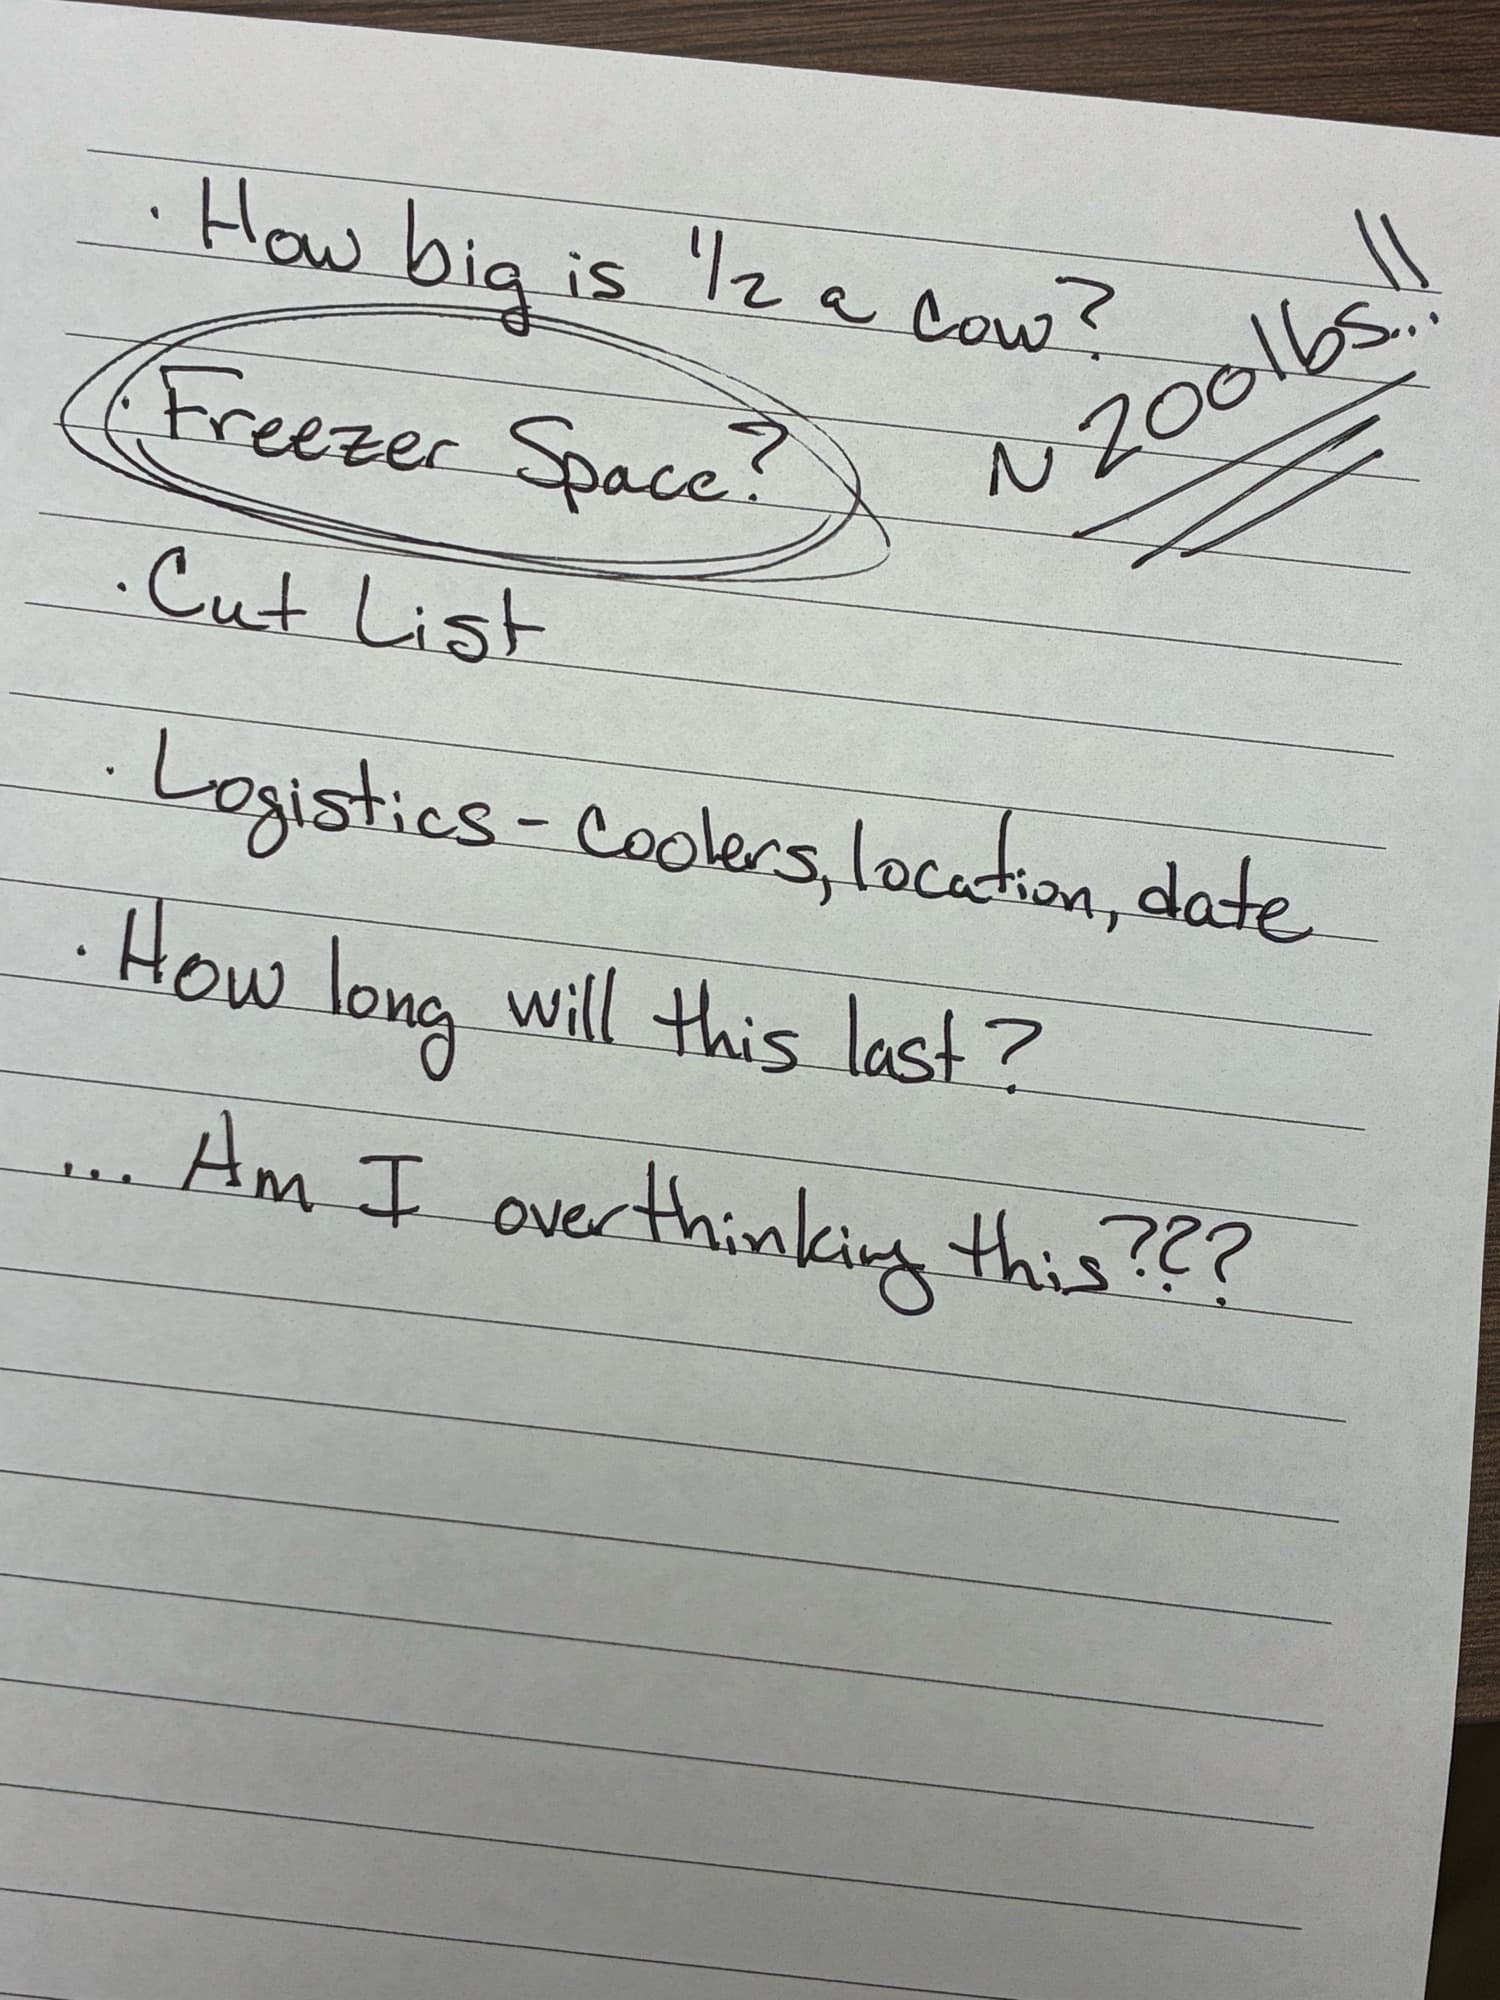 · How big is 1/2 a cow?
~ 200 lbs...!!
· Freezer Space?
· Cut List
· Logistics - coolers, location, date
· How long will this last?
... Am I overthinking this???